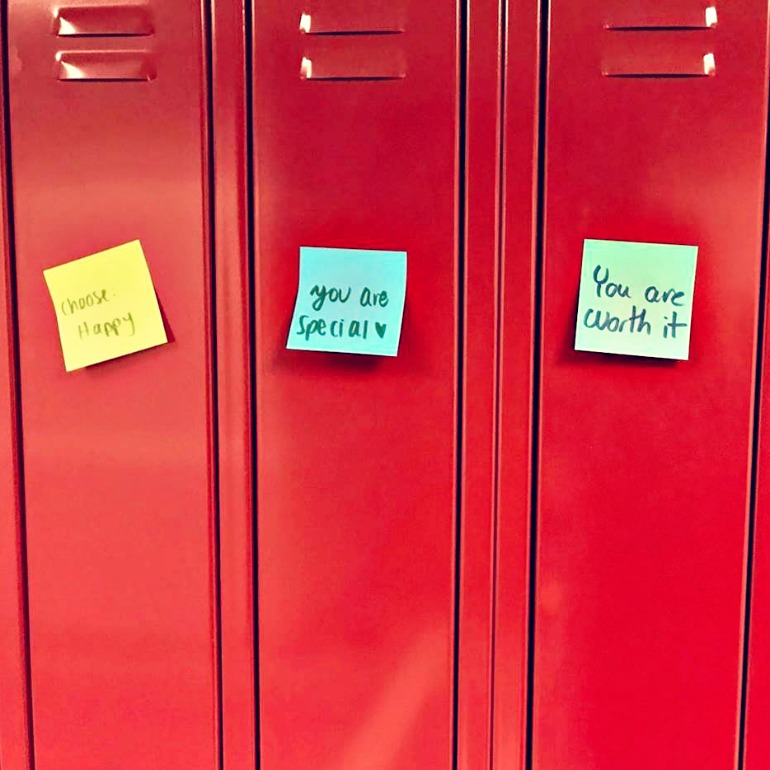 choose.
Happy
you are
special ♥
You are
worth it